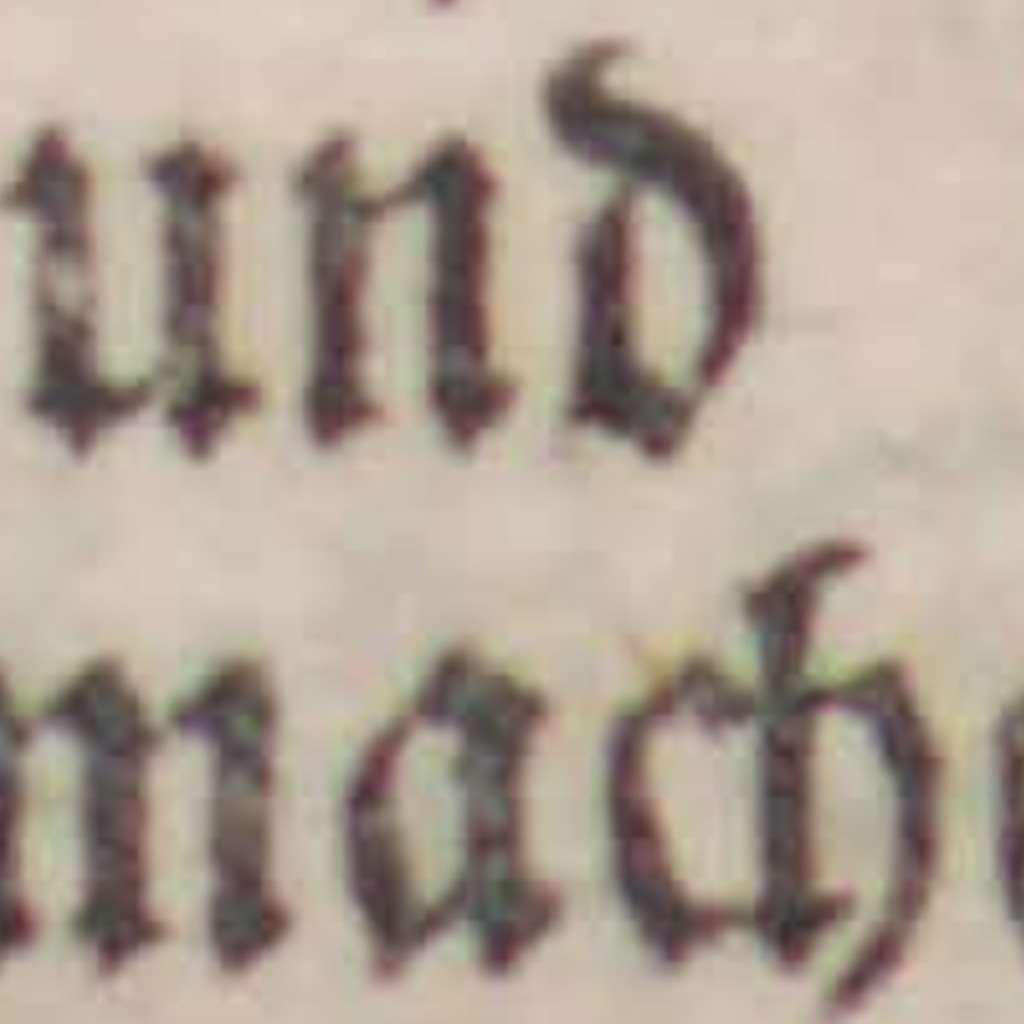 und
mach